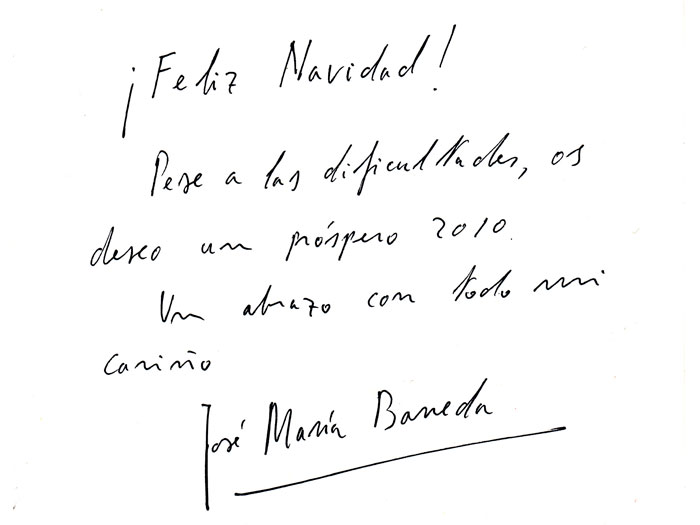 ¡Feliz Navidad!
Pese a las dificultades, os
deseo un próspero 2010.
Un abrazo con todo mi
cariño
José María Barreda